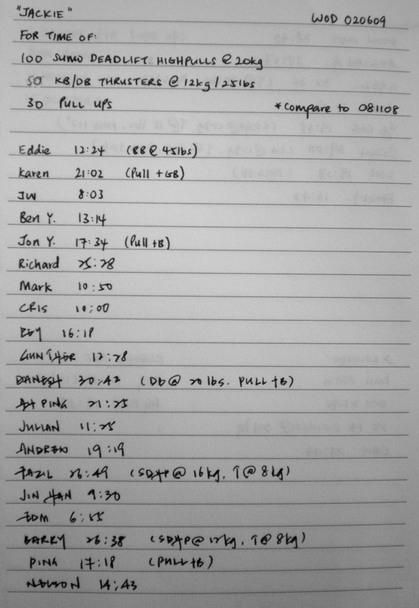 "JACKIE" WOD 020609
FOR TIME OF:
100 SUMO DEADLIFT HIGHPULLS @ 20kg
50 KB/DB THRUSTERS @ 12kg/25lbs
30 PULL UPS *Compare to 081108
Eddie 12:24 (BB@ 45lbs)
Karen 21:02 (Pull +GB)
JW 8:03
Ben Y. 13:14
Jon Y. 17:34 (Pull +B)
Richard 25:28
Mark 10:50
CRIS 10:00
REY 16:18
GUNTHER 12:28
DANESH 30:42 (DB@ 20 lbs. PULL +B)
AH PING 21:25
JULIAN 11:25
ANDREW 19:19
FAZIL 26:49 (SDHP@ 16kg, T@ 8kg)
JIN HAN 9:30
TOM 6:55
BARRY 26:38 (SDHP@ 12kg, T@ 8kg)
PING 17:18 (PULL+B)
NELSON 14:43